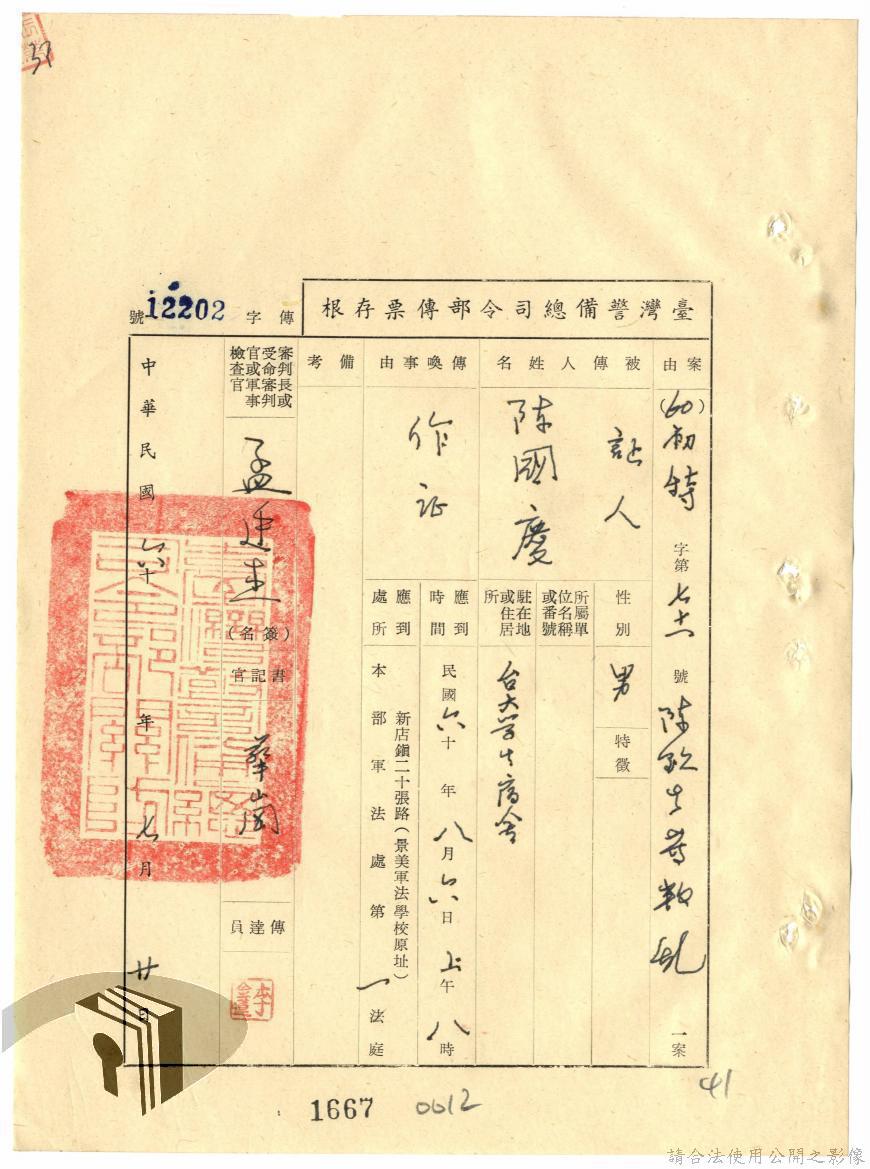 臺灣警備總司令部傳票存根
傳字 12202 號
案由
(60)初特字第七十一號陳欽生等叛亂一案
被傳人姓名
証人
陳國慶
性別
男
特徵
所屬單位名稱或番號
駐在地或住居所
台大学生宿舍
傳喚事由
作証
應到時間
民國六十年八月六日上午八時
應到處所
新店鎮二十張路(景美軍法學校原址)
本部軍法處第一法庭
備考
審判長或受命審判官或軍事檢查官
(簽名)
書記官
傳達員
中華民國六十年七月廿日
1667
0612
41
請合法使用公開之影像